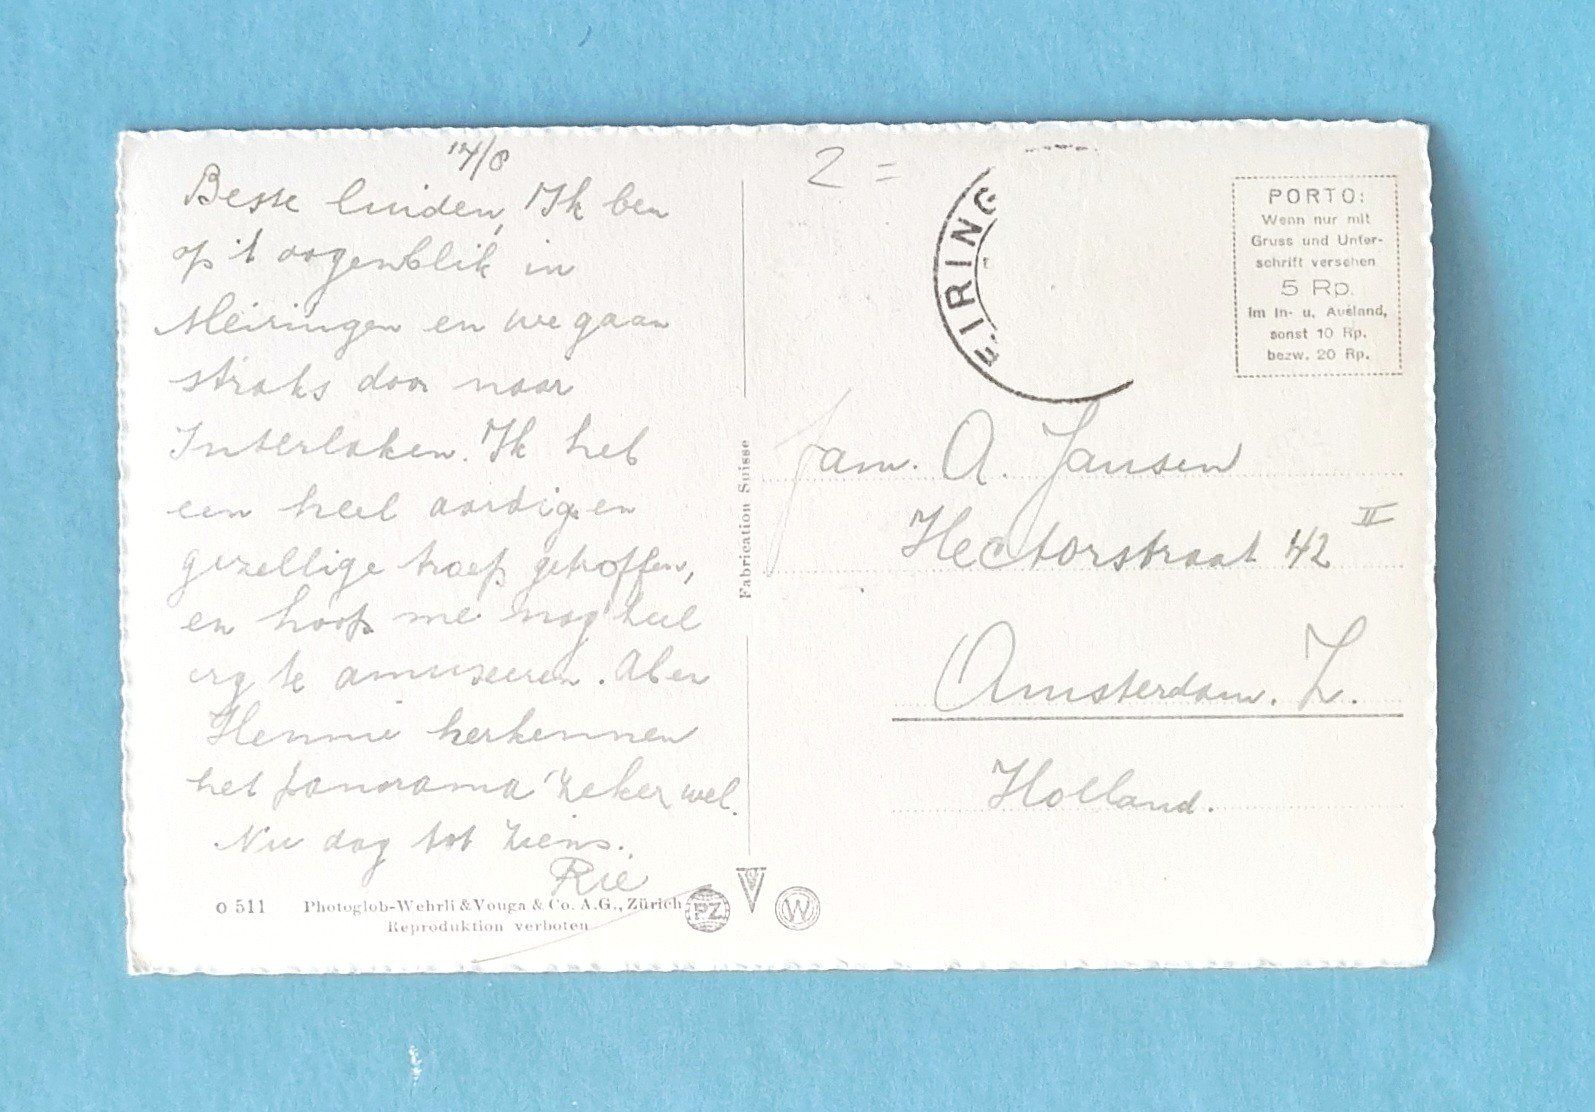 17/8
Beste luiden, Ik ben
op 't oogenblik in
Meiringen en we gaan
straks door naar
Interlaken. Ik heb
een heel aardig en
gezellige troep getroffen,
en hoop me nog heel
erg te amuseeren. Ab en
Hennie herkennen
het panorama zeker wel.
Nu dag tot ziens.
Rie
o 511 Photoglob-Wehrli & Vouga & Co. A.G., Zürich
Reproduktion verboten
PZ
V
W
Fabrication Suisse
2 =
EIRING
PORTO:
Wenn nur mit
Gruss und Unter-
schrift versehen
5 Rp.
im In- u. Ausland,
sonst 10 Rp.
bezw. 20 Rp.
Fam. A. Jansen
Hectorstraat 42 II
Amsterdam. Z.
Holland.